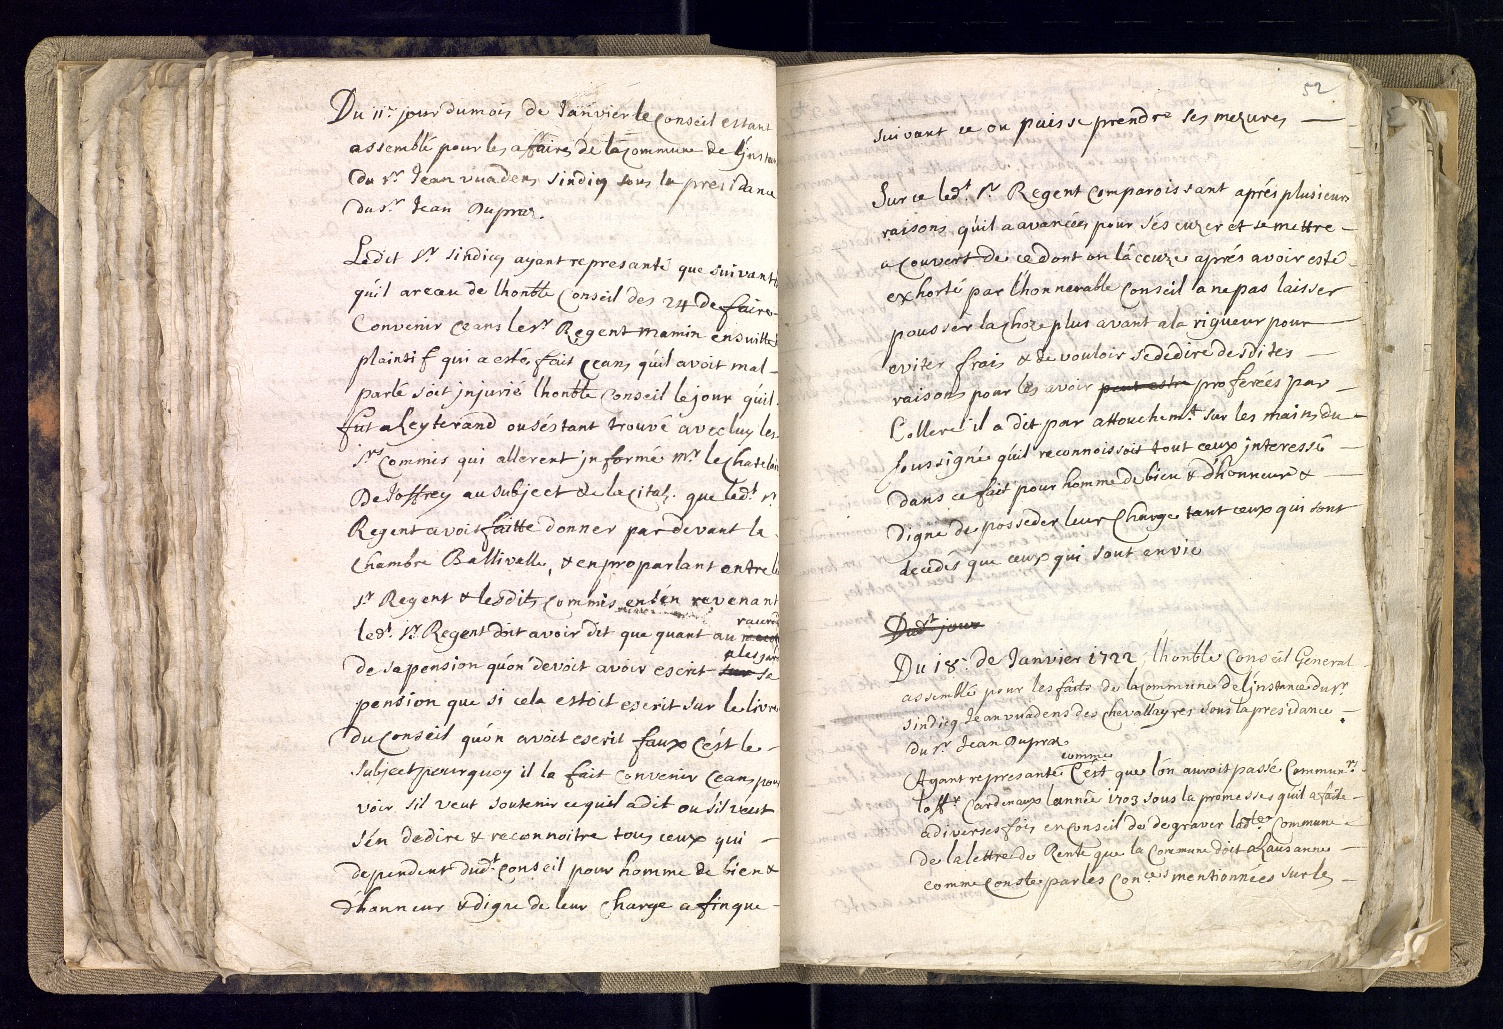 Du 11e. jour du mois de Janvier le Conseil estant
assemblé pour les affaires de la Commune de l'instan
du sr. Jean vuadens sindicq sous la presidance
du sr. Jean Dupraz.
Ledit sr. sindicq ayant represanté que suivant
qu'il a receu de lhonble Conseil des 24 de faire
Convenir ceans le sr. Regent mamin ensuitte
plaintif qui a estés fait ceans qu'il avoit mal
parlé soit jnjurié lhonble Conseil le jour qu'il
fut a Leyterand ou s'éstant trouvé avec luy les
srs Commis qui allerent jnformé mr. le Chatelain
De Joffrey au subject de le citaō. que ledt. sr
Regent avoit faitte donner par devant la
Chambre Ballivalle, & en proparlant entre le
sr Regent & lesdits Commis en s'en revenant
ledt. sr. Regent doit avoir dit que quant au
de sa pension qu'on devoit avoir escrit sur sa
pension que si cela estoit escrit sur le livre
du Conseil qu'on avoit escrit faux C'ést le
subject pourquoy il la fait convenir Ceans pour
voir sil veut soutenir ce quil a dit ou s'il veut
s'én dedire & reconnoitre tous ceux qui
dependent dudt. Conseil pour homme de bien &
d'hanneur & digne de leur Charge a fin que
52
suivant ce on puisse prendre ses mezures
Sur ce ledt. sr. Regent comparoissant aprés plusieurs
raisons qu'il a avancées pour s'éscuzer et se mettre
a couvert de ce dont on l'acceuze aprés avoir esté
exhorté par l'honnerable Conseil a ne pas laisser
pousser la choze plus avant a la rigueur pour
eviter frais & de vouloir se dedire desdites
raisons pour les avoir peut estre proferées par
Collere il a dit par attouchemt. sur les mains du
soussigné qu'il reconnoissoit tout ceux interessé
dans ce fait pour homme de bien & dhonneur &
digne de posseder leur Charge tant ceux qui sont
decedés que ceux qui sont en vie
Dudt jour
Du 18e. de Janvier 1722 lhonble Conseil General
assemblé pour les faits de la Commune de l'jnstance du sr.
sindicq Jean vuadens des Chevallayres sous la presidance
du sr. Jean Dupraz
comme
Ayant represanté C'ést que l'ón auroit passé Communrs.
Cardenaux lannée 1703 sous la promesses qu'il a faite
a diverses fois en Conseil de degraver ladte Commune
de la lettre de Rente que la Commune doit a Lausanne
comme Conste par les Conces mentionnées sur le